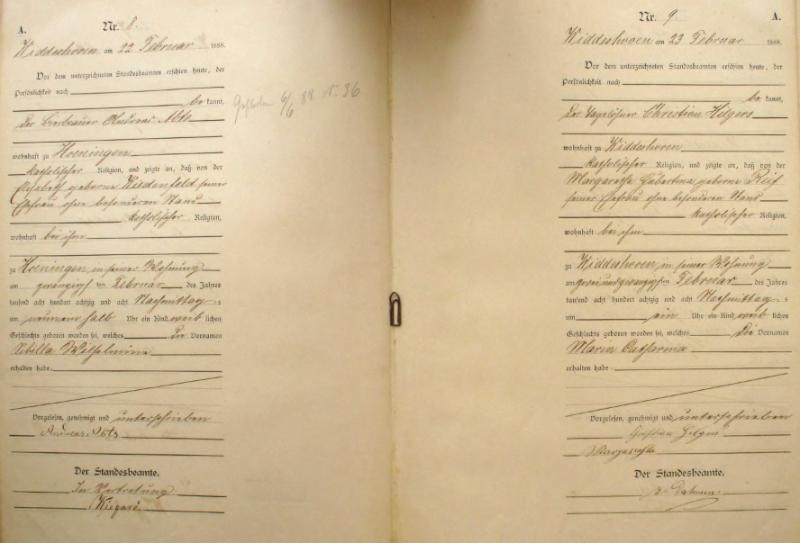 Nr. 8.
A.
Widdeshoven am 22 Februar 1888.
Vor dem unterzeichneten Standesbeamten erschien heute, der
Persönlichkeit nach
be kannt,
der Bierbrauer Andreas Abts
wohnhaft zu Hoeningen
katholischer Religion, und zeigte an, daß von der
Elisabeth geborne Wiedenfeld seiner
Ehefrau ohne besonderen Stand
katholischer Religion,
wohnhaft bei ihm
zu Hoeningen in seiner Wohnung
am zwanzigsten Februar des Jahres
tausend acht hundert achtzig und acht Nachmittags
um neun ein halb Uhr ein Kind weib lichen
Geschlechts geboren worden sei, welches die Vornamen
Sibilla Wilhelmina
erhalten habe
Vorgelesen, genehmigt und unterschrieben
Andreas Abts
Der Standesbeamte.
In Vertretung
6/6 88 Nr. 36
Nr. 9.
A.
Widdeshoven am 23 Februar 1888.
Vor dem unterzeichneten Standesbeamten erschien heute, der
Persönlichkeit nach
be kannt,
der Tagelöhner Christian Hilgers
wohnhaft zu Widdeshoven
katholischer Religion, und zeigte an, daß von der
Margaretha Hubertina geborne Reif
seiner Ehefrau ohne besonderen Stand
katholischer Religion,
wohnhaft bei ihm
zu Widdeshoven in seiner Wohnung
am zwei und zwanzigsten Februar des Jahres
tausend acht hundert achtzig und acht Nachmittags
um ein Uhr ein Kind weib lichen
Geschlechts geboren worden sei, welches die Vornamen
Maria Catharina
erhalten habe
Vorgelesen, genehmigt und unterschrieben
Christian Hilgers
Der Standesbeamte.